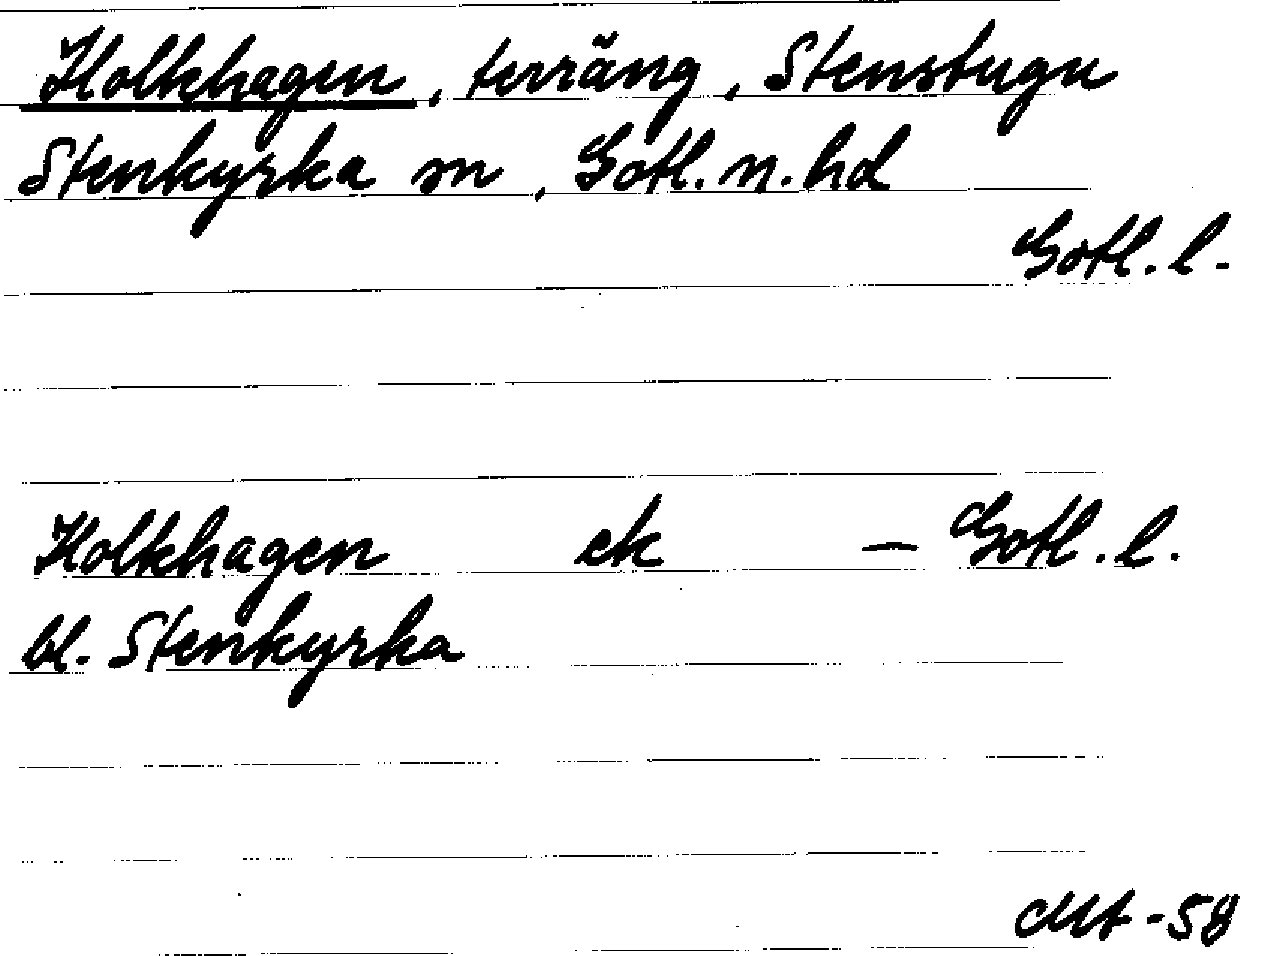 Holkhagen, terräng, Stenstugu
Stenkyrka sn, Gotl. n. hd
Gotl. l.
Holkhagen ek — Gotl. l.
bl. Stenkyrka
-58